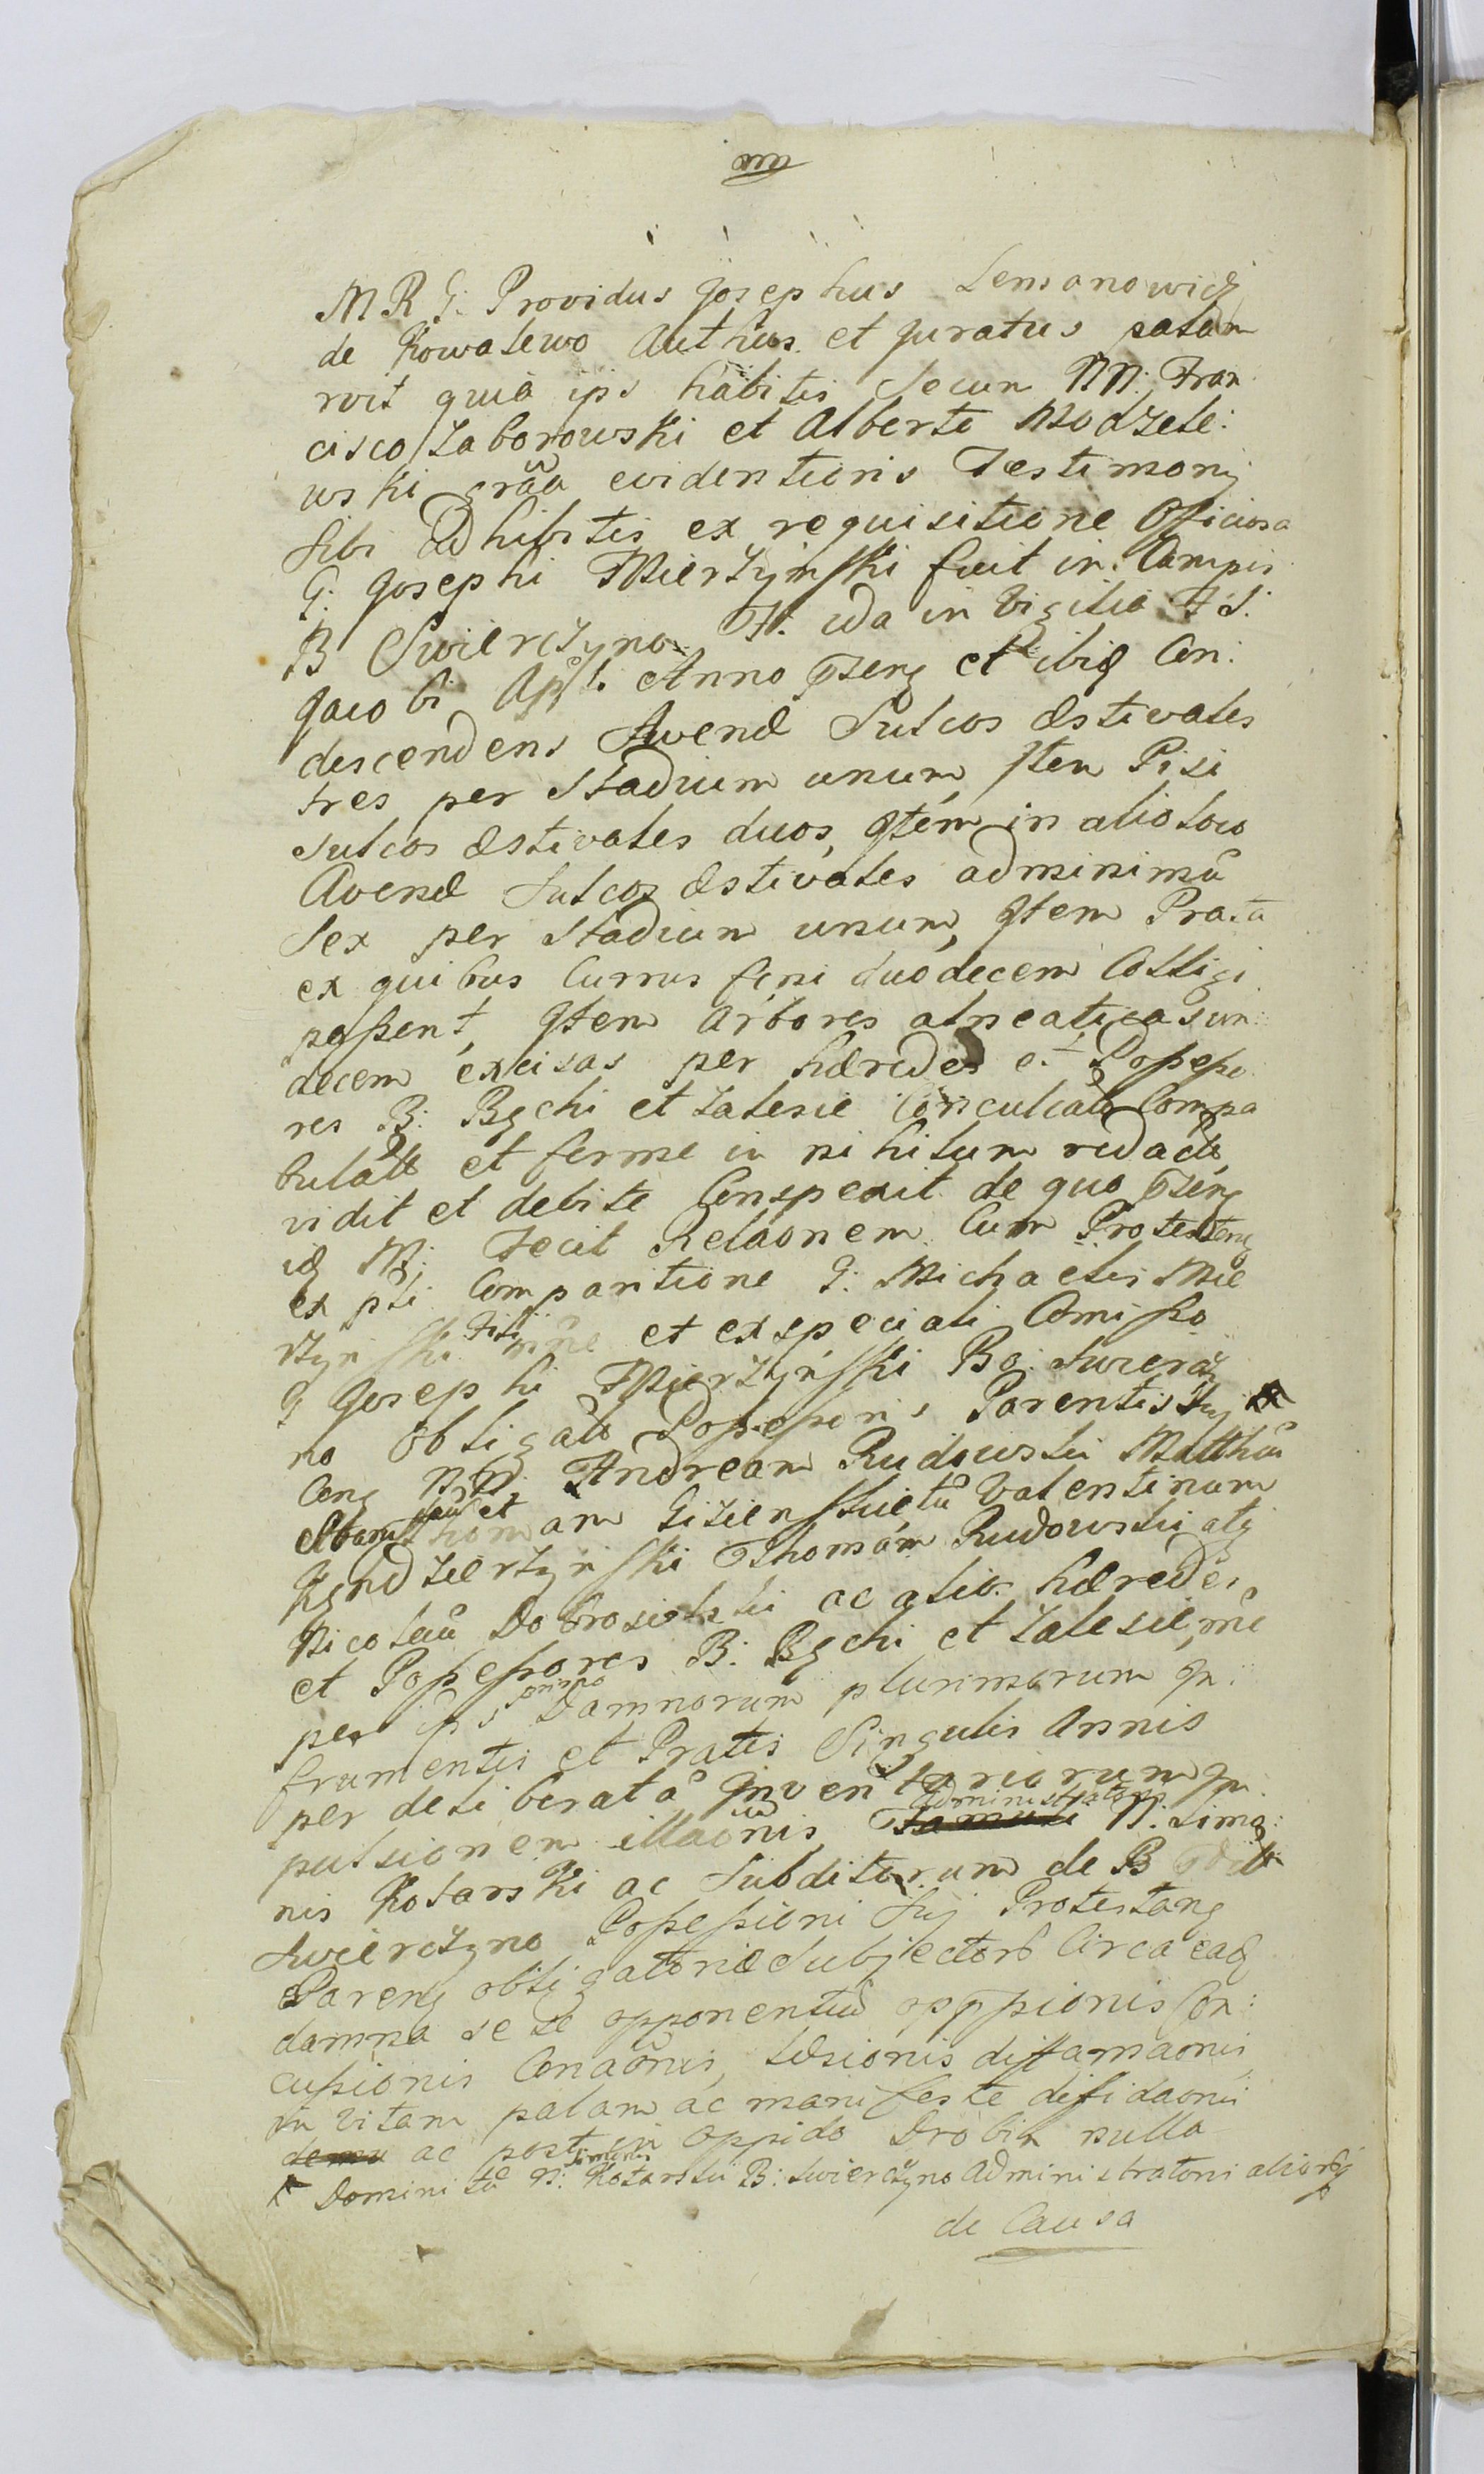 M R G: Providus Josephus Lemanowicz
de Kowalewo Authus et Juratus palam
rvit quia ips habitis secum NN: Fran
cisco Zaborowski et Alberto Modzele:
wski grãa evidentioris Testimonij
sibi adhibitis ex requisitione Officiosa
G: Josephi Mierzynski fuit in Campis
B Swierczyno F. IVa in Vigilia F S:
Jacobi Apli Anno
descendens Avenæ Sulcos æstivales
tres per Stadium unum Item Pisi
sulcos æstivales duos, Item in alio loco
Avenæ Sulcos æstivales ad minimũ
Sex per Stadium unum, Item Prata
ex quibus Currus feni duodecem Colligi
possent, Item Arbores alneaticas un:
decem excisas per hæredes et Possesso
res B: Bychi et Zalesie Conculcata Compa
bulata et ferme in nihilum redacta
vidit et debite Conspexit de quo
M: fecit Relãonem Cum
ex pti Comparitione G: Michaelis Mie
rzynski Filij et ex speciali Comisso
G Josephi Mierzynski Bo: Swierczy
no Obligato Possessoris Parentis sui
NN: Andream Rudowski Matthiã
et
Thomam Gizienski Valentinum
Kendzierzynski Thomam Rudowski atq
Nicolaũ Dobrosielski ac alios hæredes
et Possessores B: Bychi et Zalesie, me
per ips omnino Damnorum plurimorum In:
frumentis et Pratis Singulis Annis
per deliberatã Inventariorum Im
administratoris
pulsionem illãonis Famuli N: Simo
nis Kotarski ac Subditorum de B
Swierczyno Possessioni sui Protestans
Parens obligatoriæ subjectorũ Circa eadẽ
damna sese opponentiũ oppssionis Con:
cussionis Conaõnis, læsionis diffamaonis
in Vitam palam ac manifeste diffidaonis
demu ac post in oppido Drobin nulla
Simonis
Dominik N: Kotarski B: Swierczyno Administratori aliorq
de Causa